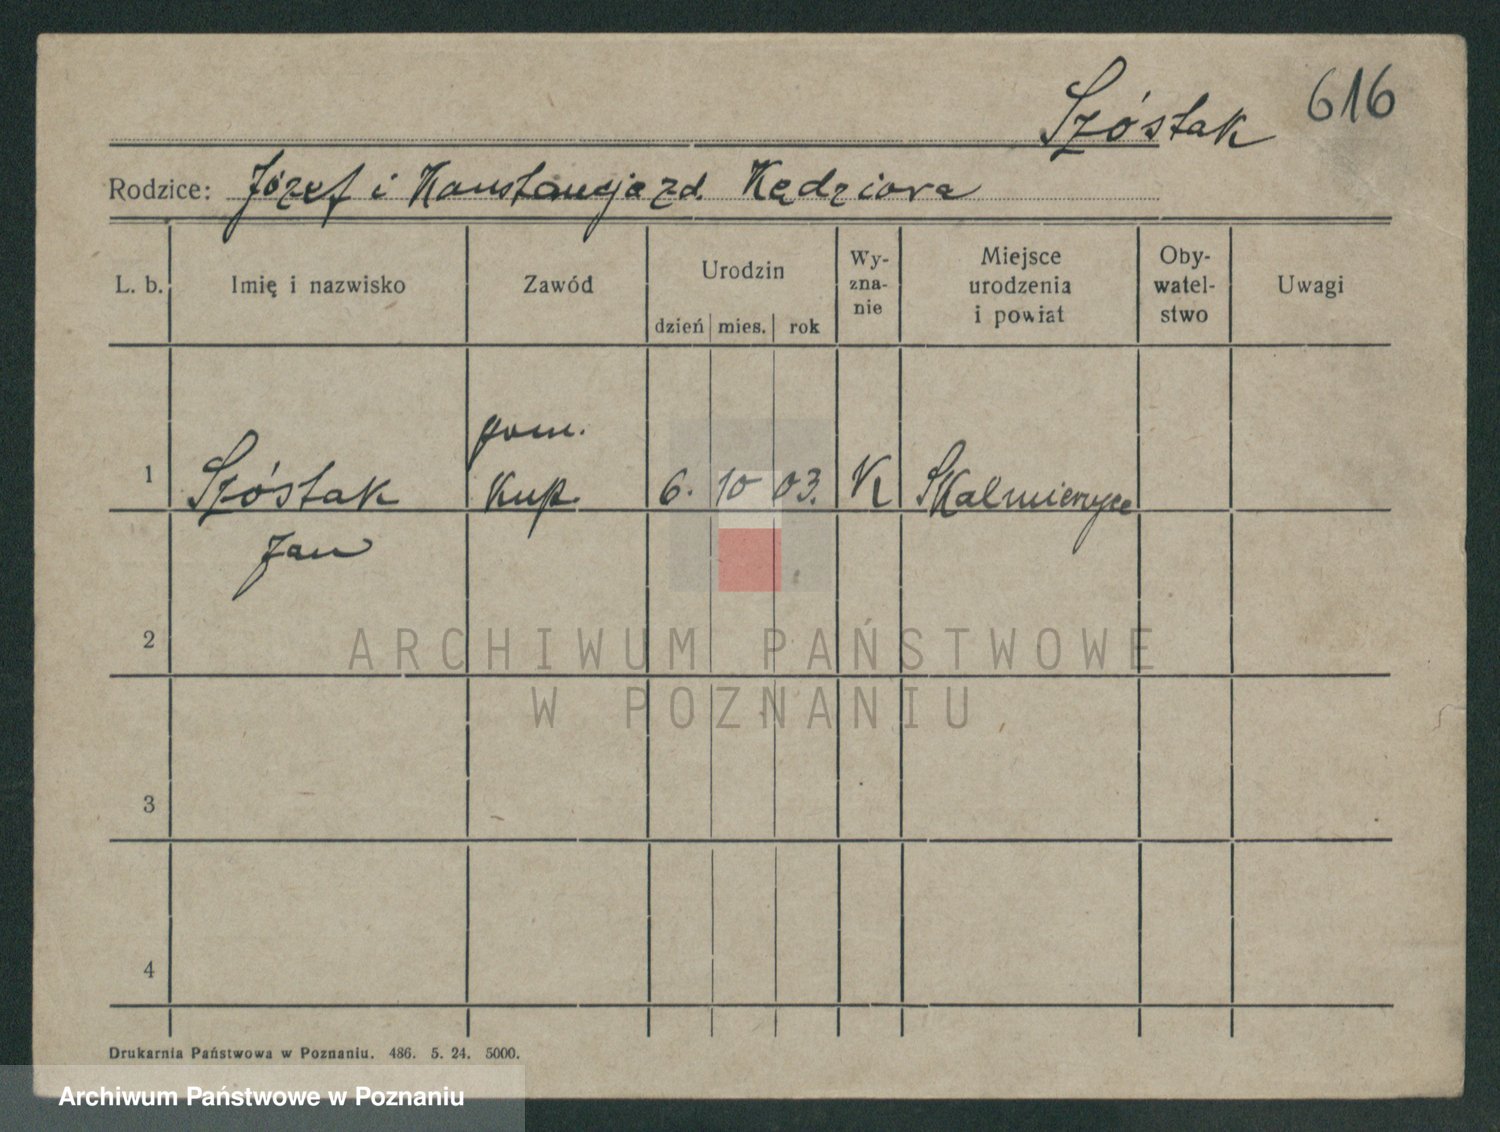 Szóstak 616
Rodzice: Józef i Konstancja zd. Kędziora
L. b. Imię i nazwisko Zawód Urodzin dzień mies. rok Wy-zna-nie Miejsce urodzenia i powiat Oby-watel-stwo Uwagi
pom.
1 Szóstak Kup. 6. 10 03. K Skalmierzyce
Jan
2
ARCHIWUM PAŃSTWOWE
W POZNANIU
3
4
Drukarnia Państwowa w Poznaniu. 486. 5. 24. 5000.
Archiwum Państwowe w Poznaniu